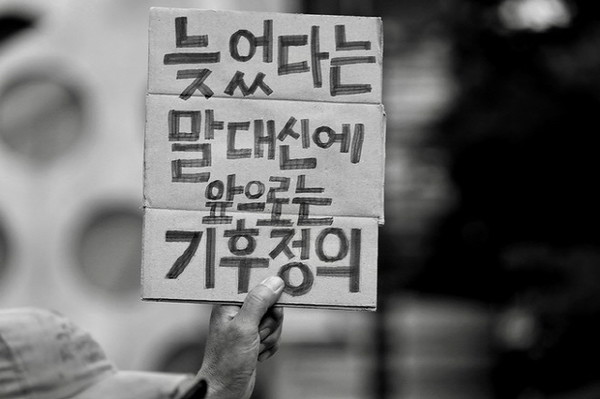 늦었다는
말 대신에
앞으로는
기후정의